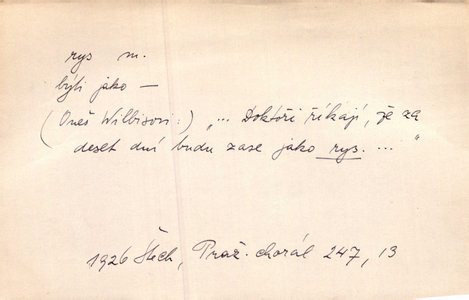 rys m.
býti jako —
(Oneš Wilbisovi:) „... Doktoři říkají, že za
deset dní budu zase jako rys. ... "
1926 Štech, Praž. chorál 247, 13